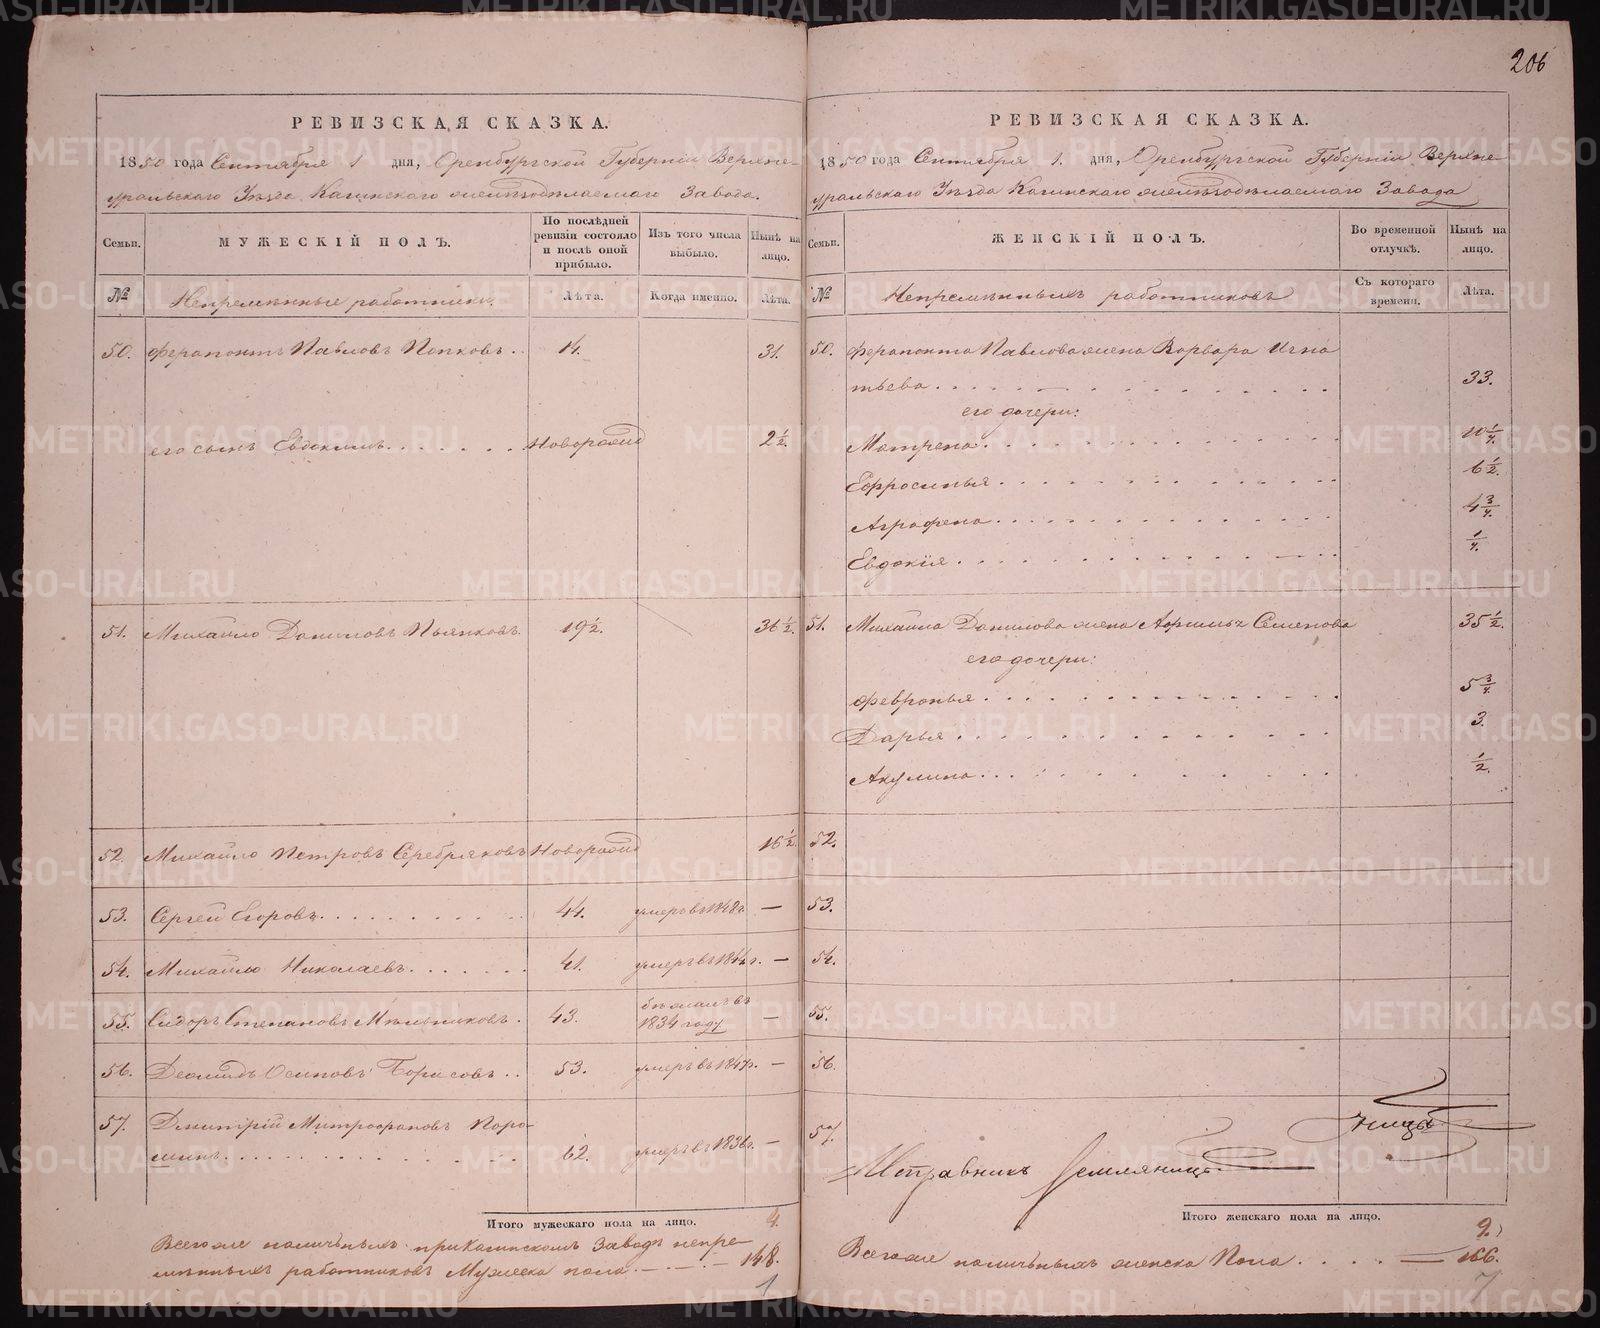 206
РЕВИЗСКАЯ СКАЗКА.
1850 года Сентября 1 дня, Оренбургской Губерніи Верхне-
уральскаго Уѣзда Кагинскаго желѣзодѣлаемаго Завода.
Семьи.
МУЖЕСКІЙ ПОЛЪ.
По послѣдней ревизіи состояло и послѣ оной прибыло.
Изъ того числа выбыло.
Нынѣ на лицо.
№
Непремѣнные работники.
Лѣта.
Когда именно.
Лѣта.
50. Ферапонтъ Павловъ Попковъ.. 14. 31.
его сынъ Евдокимъ...... Новорожд 2 1/2.
51. Михайло Даниловъ Пьянковъ. 19 1/2. 36 1/2.
52. Михайло Петровъ Серебряковъ Новорожд 16 1/2.
53. Сергей Егоровъ. . . . . . . . . 44. умеръ въ 1848 г. —
54. Михайло Николаевъ. . . . . . 41. умеръ въ 1844 г. —
55. Сидоръ Степановъ Мѣльниковъ. 43. бѣжалъ въ
1834 году —
56. Деомидъ Осиповъ Борисовъ.. 53. умеръ въ 1847 г. —
57. Дмитрій Митрофановъ Паро-
шинъ. . . . . . . . . . . . 62. умеръ въ 1836 г. —
Итого мужескаго пола на лицо. 4.
Всего же наличныхъ при Кагинскомъ Заводѣ непре-
мѣнныхъ работниковъ Мужеска пола — . — . — 148.
1
РЕВИЗСКАЯ СКАЗКА.
1850 года Сентября 1. дня, Оренбургской Губерніи Верхне-
уральскаго Уѣзда Кагинскаго желѣзодѣлаемаго Завода
Семьи.
ЖЕНСКІЙ ПОЛЪ.
Во временной отлучкѣ.
Нынѣ на лицо.
№
Непремѣнныхъ работниковъ
Съ котораго времени.
Лѣта.
50. Ферапонта Павлова жена Варвара Игна
тьева. . . . . . . . . . . 33.
его дочери:
Матрена. . . . . . . . . . 11 1/4.
Ефросинья. . . . . . . . . 6 1/2.
Аграфена. . . . . . . . . . 4 3/4.
Евдокія. . . . . . . . . . 1/4.
51. Михаила Данилова жена Афимья Семенова 35 1/2.
его дочери:
Февронья. . . . . . . . . . 5 3/4.
Дарья. . . . . . . . . . . 3.
Акулина. . . . . . . . . . 1/2.
52.
53.
54.
55.
56.
57.
Исправникъ Земляницынъ
Итого женскаго пола на лицо. 9.
Всего же наличныхъ женска Пола. . . . — 166.
7
METRIKI.GASO-URAL.RU